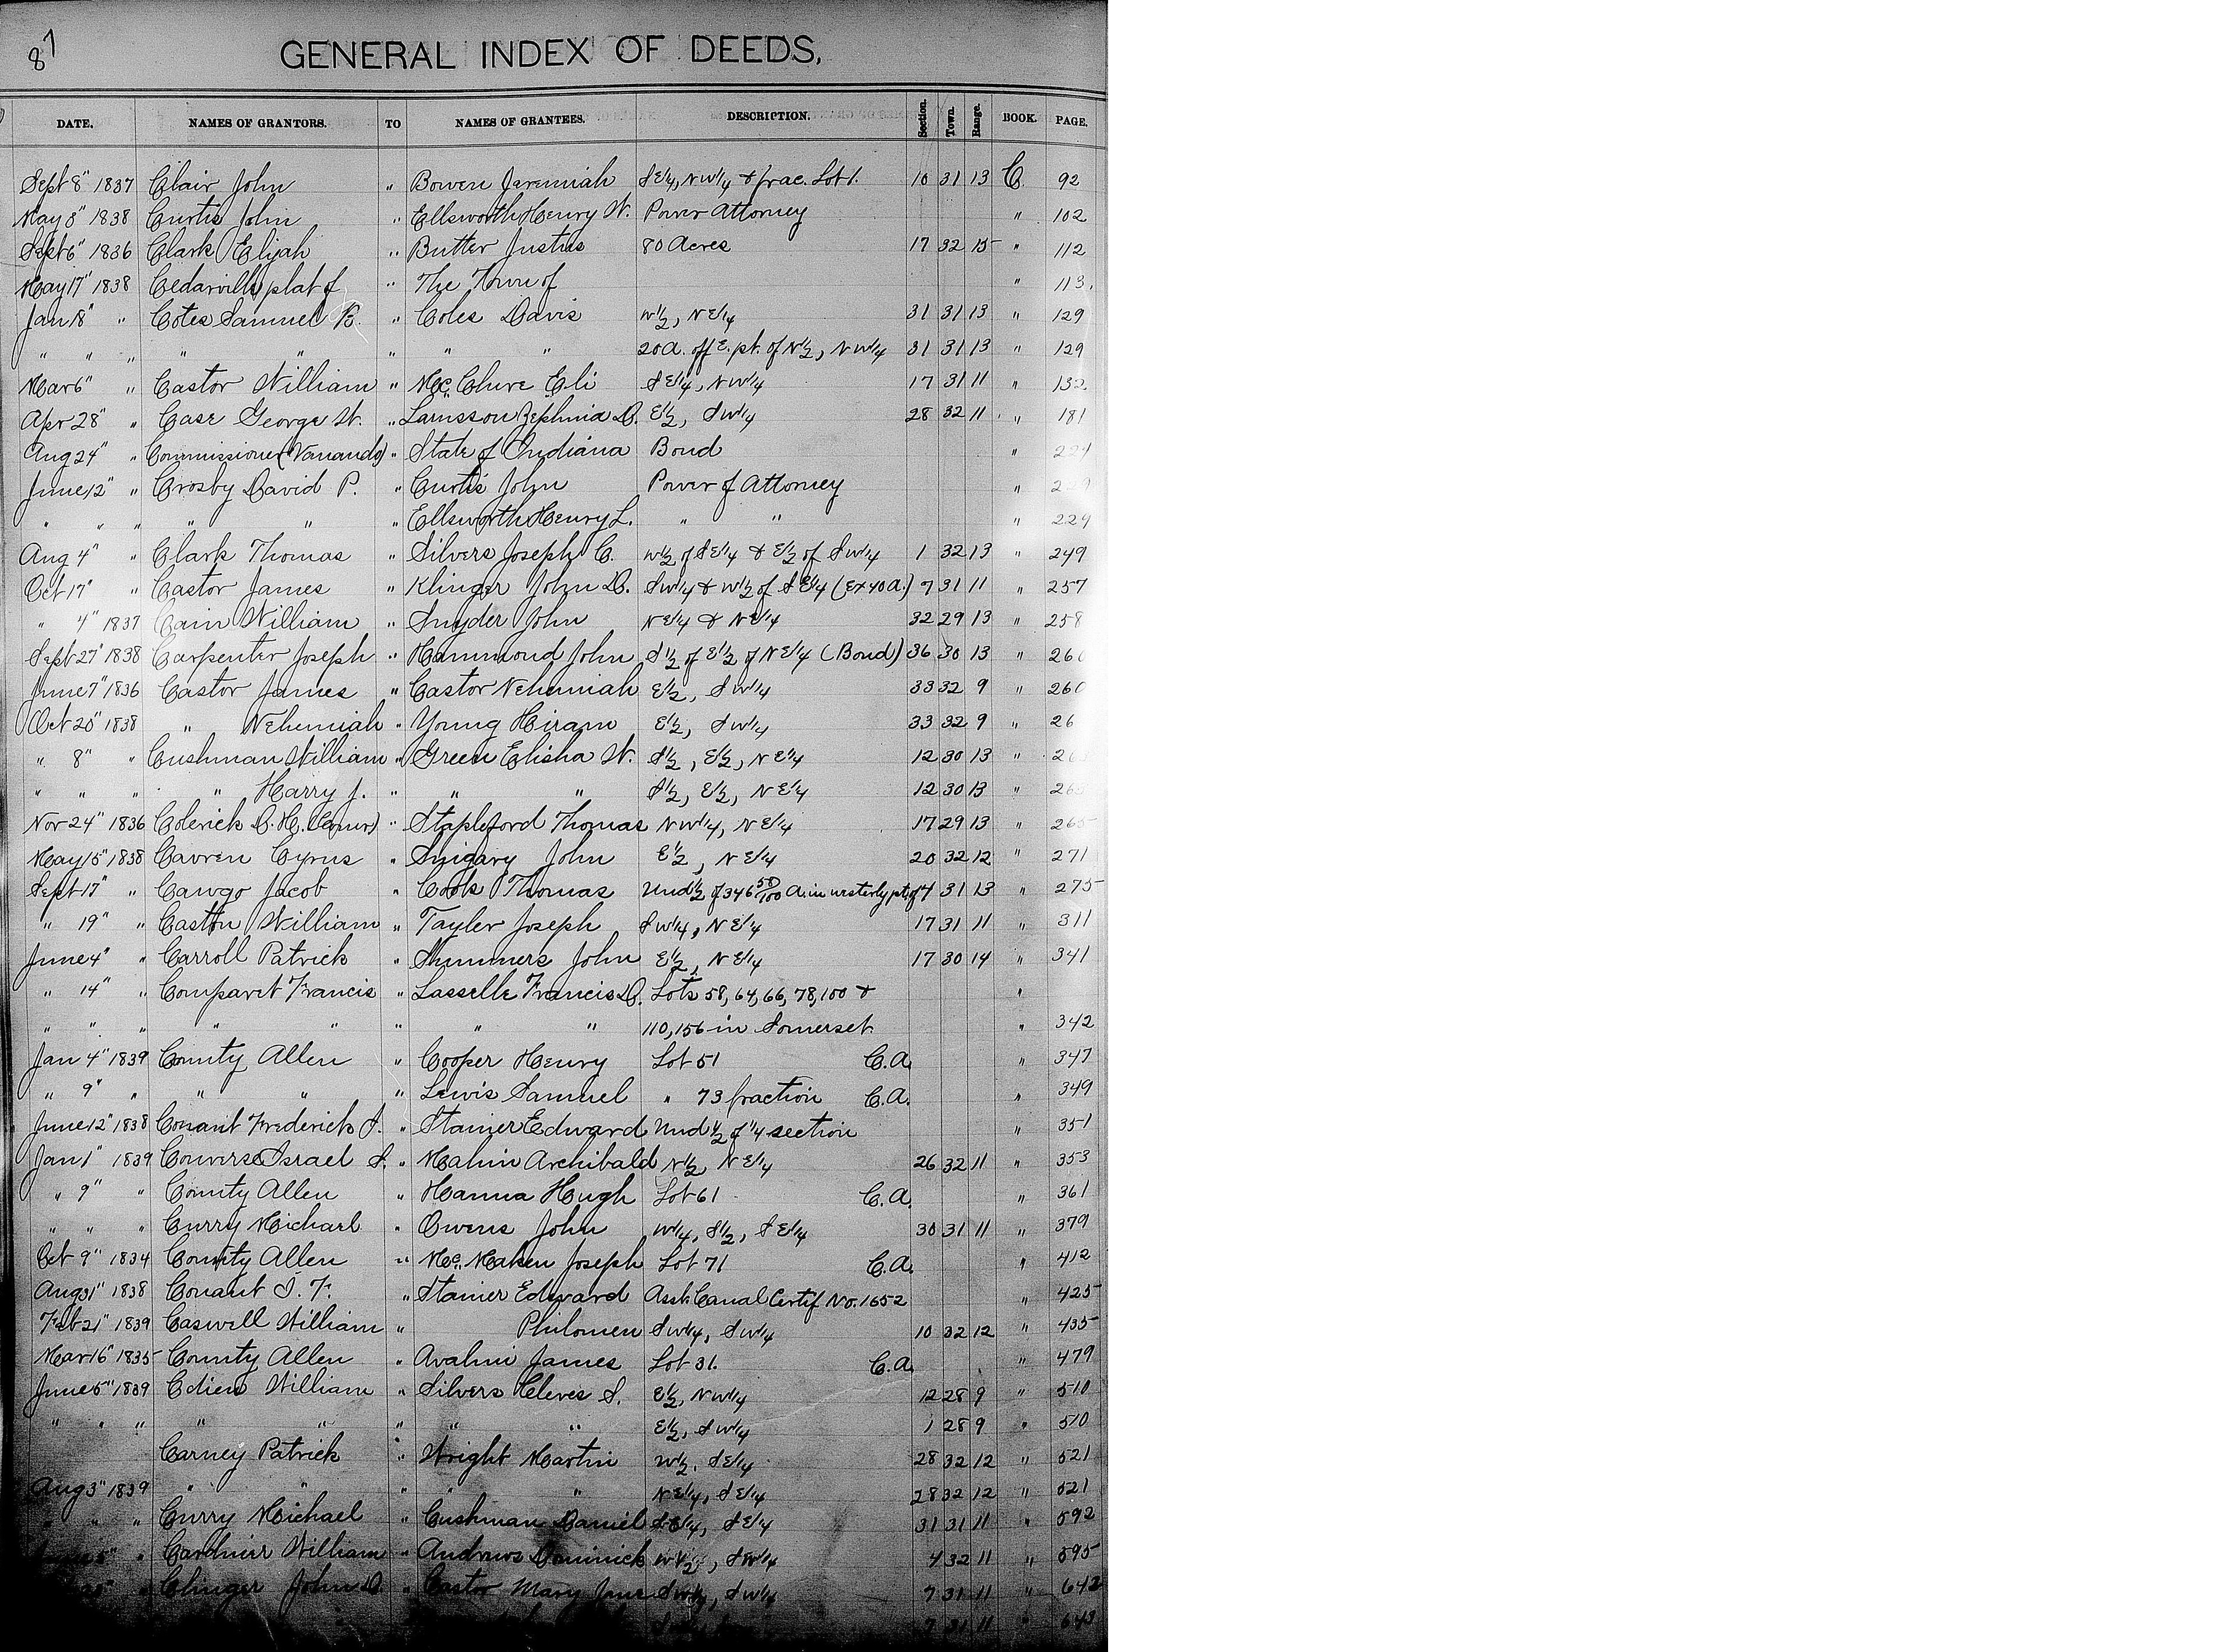 87
GENERAL INDEX OF DEEDS.
DATE. NAMES OF GRANTORS. TO NAMES OF GRANTEES. DESCRIPTION. Section. Town. Range. BOOK. PAGE.
Sept 8" 1837 Clair John " Bowen Jeremiah SE1/4, NW1/4 & frac. Lot 1. 10 31 13 C. 92
May 8" 1838 Curtis John " Ellsworth Henry W. Power Attorney " 102
Sept 6" 1836 Clark Elijah " Butter Justus 80 Acres 17 32 15 " 112
May 17" 1838 Cedarville plat of " The Town of " 113.
Jan 18" " Cotes Samuel B. " Coles Davis W1/2, NE1/4 31 31 13 " 129
" " " " " " " " 20 a. off E. pt. of N1/2, NW1/4 31 31 13 " 129
Mar 6" " Castor William " McClure Eli SE1/4, NW1/4 17 31 11 " 132
Apr 28" " Case George W. " Zephnia D. E1/2, SW1/4 28 32 11 " 181
Aug 24" " Commissioner " State of Indiana Bond "
June 12" " Crosby David P. " Curtis John Power of Attorney "
" " " " " " Ellsworth Henry L. " " " 229
Aug 4" " Clark Thomas " Silvers Joseph C. W1/2 of SE1/4 & E1/2 of SW1/4 1 32 13 " 249
Oct 17" " Castor James " Klinger John D. SW1/4 & W1/2 of SE1/4 (Ex 40 a.) 7 31 11 " 257
" 4" 1837 Cain William " Snyder John NE1/4 & NE1/4 32 29 13 " 258
Sept 27" 1838 Carpenter Joseph " Hammond John S1/2 of E1/2 of NE1/4 (Bond) 36 30 13 "
June 7" 1836 Castor James " Castor Nehemiah E1/2, SW1/4 33 32 9 " 260
Oct 20" 1838 " Nehemiah " Young Hiram E1/2, SW1/4 33 32 9 "
" 8" " Cushman William " Green Elisha W. S1/2, E1/2, NE1/4 12 30 13 "
" " " " Harry J. " " " S1/2, E1/2, NE1/4 12 30 13 "
Nov 24" 1836 Colerick D. H. (Comr) " Stapleford Thomas NW1/4, NE1/4 17 29 13 " 265
May 15" 1838 Cavren Cyrus " John E1/2, NE1/4 20 32 12 " 271
Sept 17" " Jacob " Cook Thomas Und 1/2 of 346 50/100 A. in westerly pt. of 4 31 13 " 275
" 19" " Caston William " Tayler Joseph SW1/4, NE1/4 17 31 11 " 311
June 4" " Carroll Patrick " John E1/2, NE1/4 17 30 14 " 341
" 14" " Comparet Francis " Lasselle Francis D. Lots 58, 64, 66, 78, 100 & "
" " " " " " " " 110, 156 in Somerset " 342
Jan 4" 1839 County Allen " Cooper Henry Lot 51 C.A. " 347
" 9" " " " " Lewis Samuel " 73 fraction C.A. " 349
June 12" 1838 Conant Frederick J. " Stainer Edward Und 1/2 of 1/4 section " 351
Jan 1" 1839 Converse Israel S. " Archibald N1/2, NE1/4 26 32 11 " 353
" 9" " County Allen " Hanna Hugh Lot 61 C.A. " 361
" " " Curry Michael " Owens John W1/4, S1/2, SE1/4 30 31 11 " 379
Oct 9" 1834 County Allen " McMaken Joseph Lot 71 C.A. " 412
Aug 31" 1838 Conant J. F. " Stainer Edward Asst. Canal Certif No. 1652 " 425
Feb 21" 1839 Caswell William " Philomen SW1/4, SW1/4 10 32 12 " 435
Mar 16" 1835 County Allen " Avaline James Lot 31. C.A. " 479
June 5" 1839 William " Silvers S. E1/2, NW1/4 12 28 9 " 510
" " " " " " " " E1/2, SW1/4 1 28 9 " 510
Carney Patrick " Wright Martin W1/2, SE1/4 28 32 12 " 521
Aug 3" 1839 " " " " " NE1/4, SE1/4 28 32 12 " 521
" " " Curry Michael " Cushman Daniel SE1/4, SE1/4 31 31 11 " 592
" Gardnier William " Andrews Dominick W1/2, SW1/4 4 32 11 " 595
" Clinger John D. " Castor Mary Jane SW1/4, SW1/4 7 31 11 " 642
7 31 11 " 643